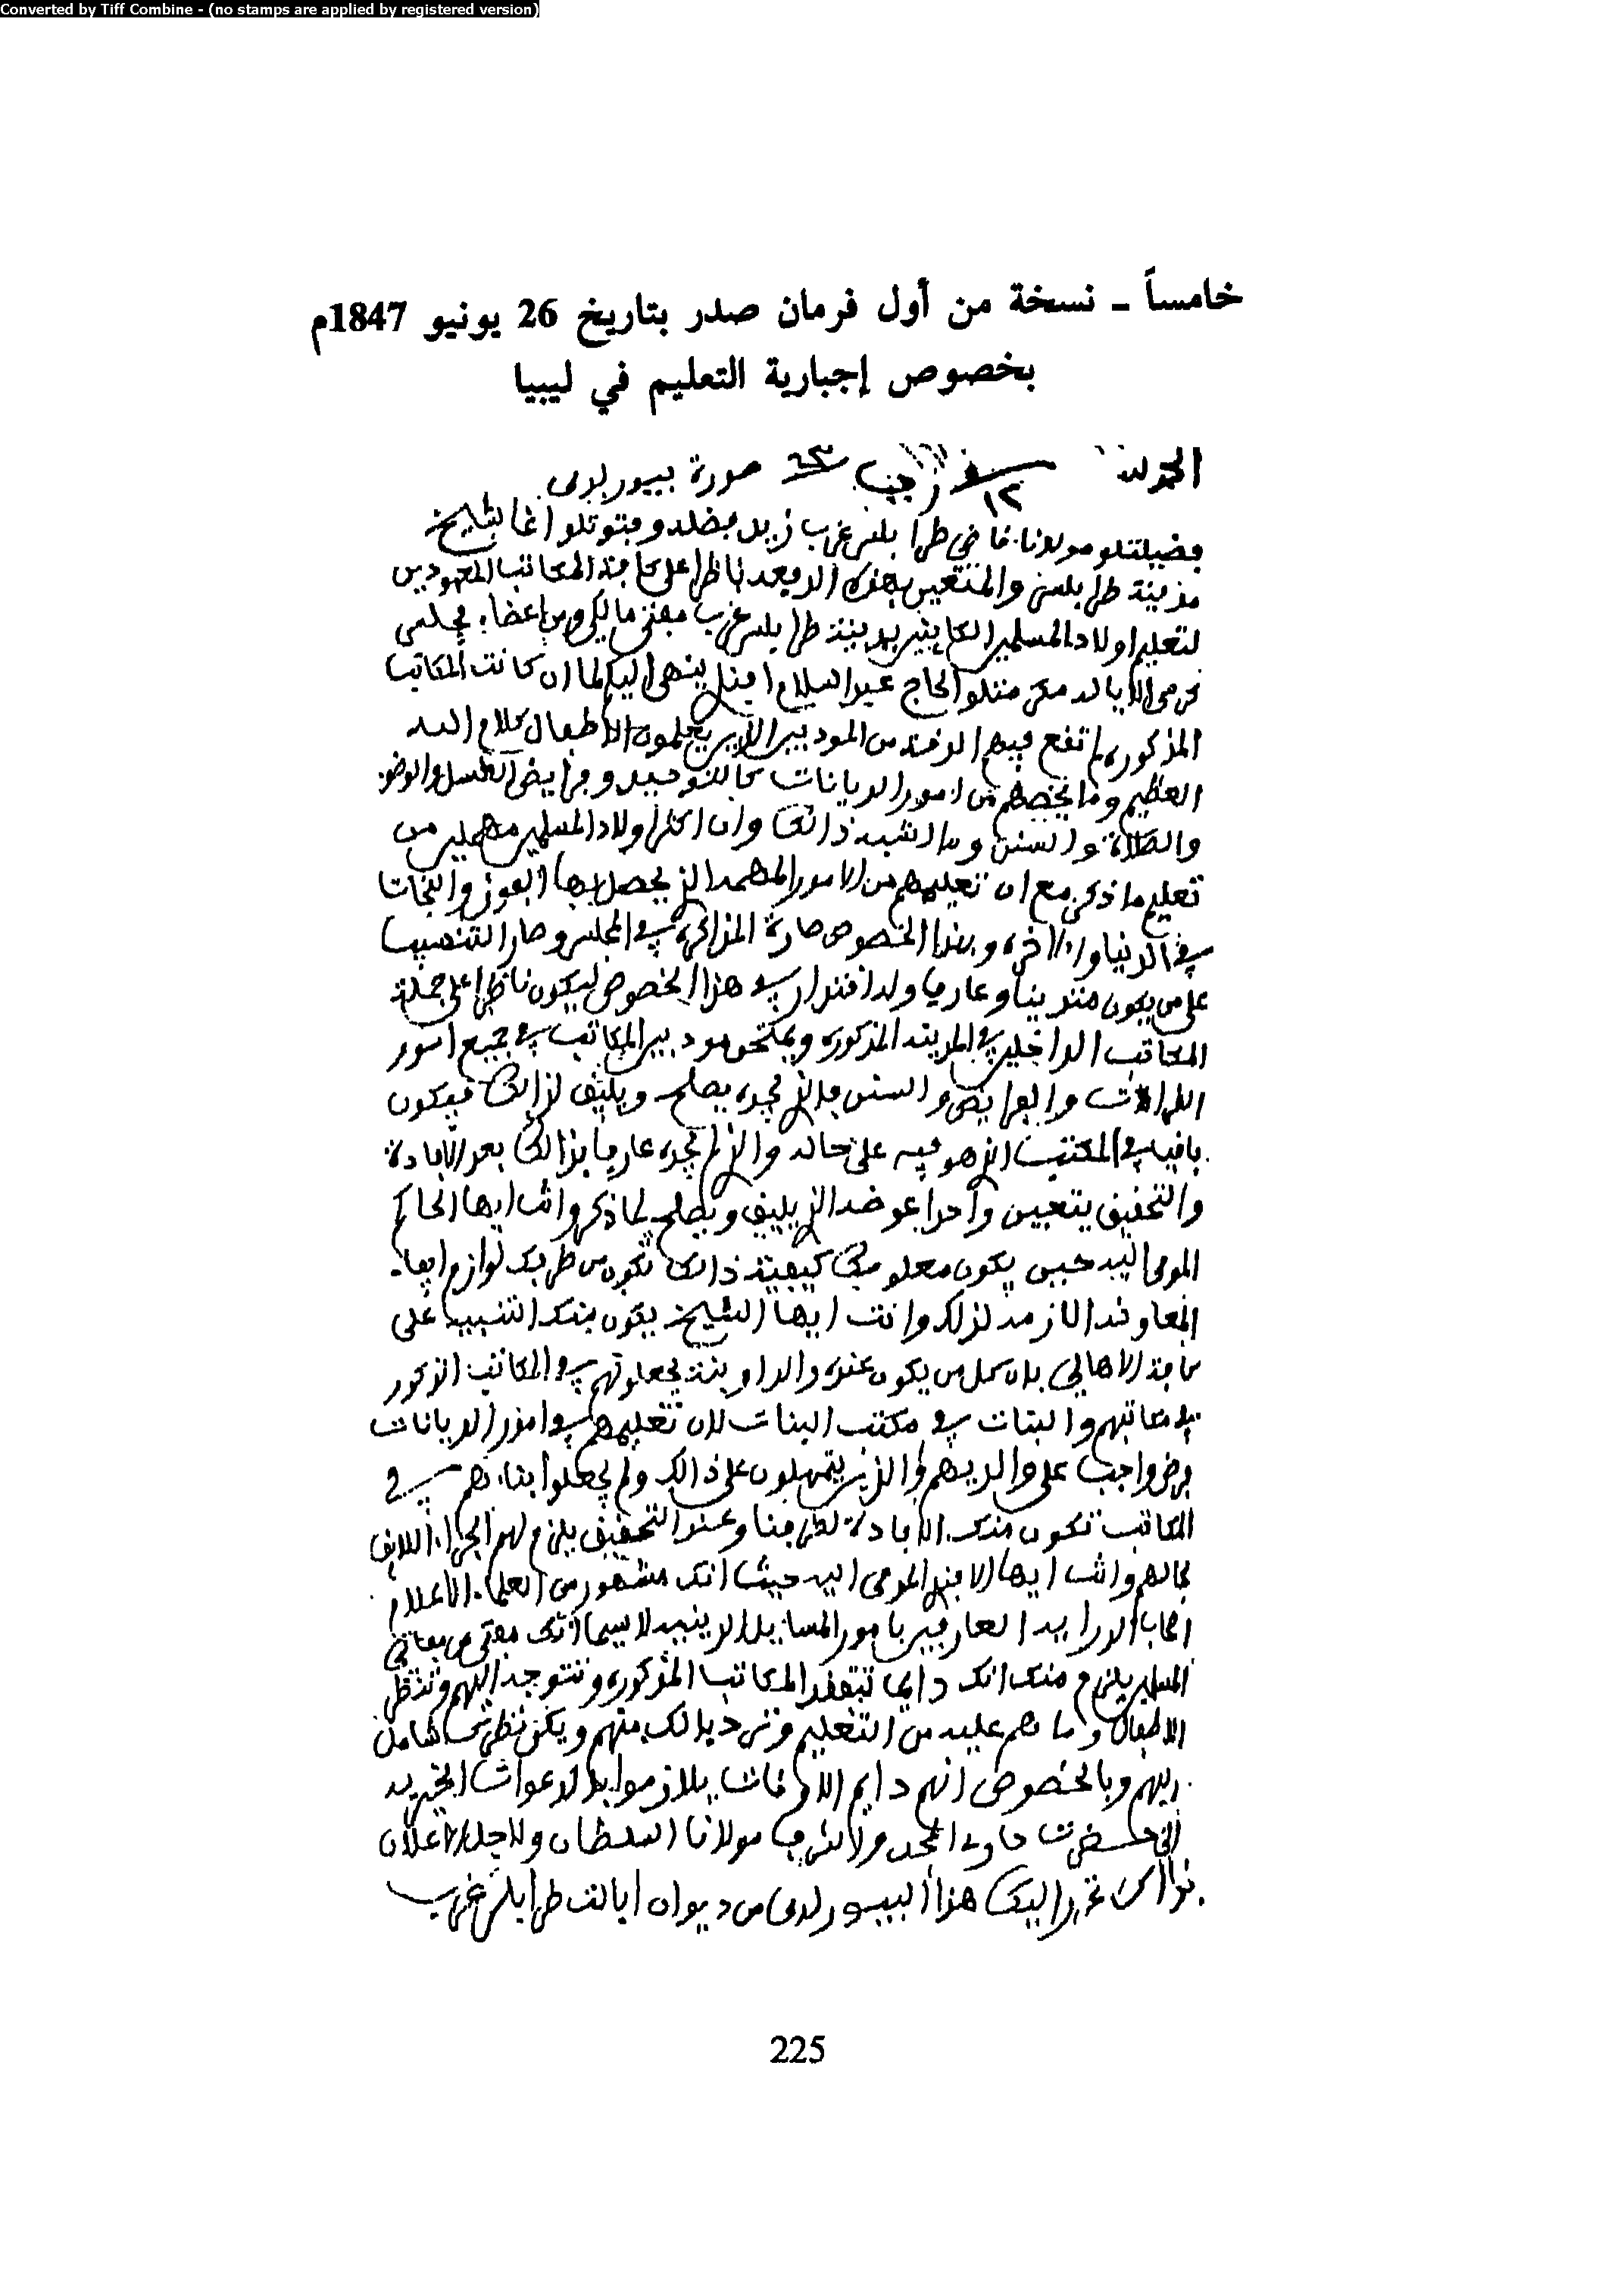 Converted by Tiff Combine - (no stamps are applied by registered version)
خامساً ـ نسخة من أول فرمان صدر بتاريخ 26 يونيو 1847م
بخصوص إجبارية التعليم في ليبيا
الحمد لله ١٢ رجب ٦٣ صورة بيورلدى
فضيلتلو مولانا قاضي طرابلس غرب زيد فضله وفتوتلو اغا لشيخ
مدينة طرابلس والمتعين بهذه الدفعه ناظرا على كافة المكاتب المعهودين
لتعليم اولاد المسلمين الكاينين بمدينة طرابلس غرب مفتي مالكي ومن اعضاء مجلس
الحاج عبد السلام افندي ينهى اليكم لما ان كانت المكاتب
المذكوره لم تقع فيها الدقة من المودبين الذين يعلمون الاطفال كلام الله
العظيم وما يخصهم من امور الديانات كالتوحيد وفرايض الغسل والوضو
والصلاة والسنن وما اشبه ذالك وان اكثر اولاد المسلمين مهملين من
تعليم ما ذكر مع ان تعليمهم من الامور المهمه الذي يحصل بها الفوز والنجات
في الدنيا والاخره وبهذا الخصوص صارة المذاكره في المجلس وصار التنصيب
على من يكون متدينا وعارف وله اقتدار في هذا الخصوص ليكون ناظرا على جملة
المكاتب الداخلين في المدينه المذكوره ويمتحن مودبين المكاتب في جميع امور
القراءات والفرايض والسنن فالذي يجده يصلح ويليق لذالك فيكون
باقيا في المكتب الذي هو فيه على حاله والذي لم يجده عارفا بذالك بعد الافادة
والتحقيق يتعين واحدا عوضه الذي يليق ويصلح لما ذكر وانت ايها الحاكم
المومى اليه حيث يكون معلومك كيفية ذالك تكون من طرفك لوازم ايفاء
المعاونه اللازمه لذلك وانت ايها الشيخ يكون منك التنبيه على
كافة الاهالي بان كل من يكون عنده ولد او بنت يجعلوهم في المكاتب الذكور
في مكاتبهم والبنات في مكتب البنات لان تعليمهم في امور الديانات
فرض واجب على والديهم والذين يتمهلون على ذالك ولم يجعلوا ابناءهم في
المكاتب تكون منك الافادة لطرفنا وعند التحقيق يلزم لهم الجزاء اللايق
بحالهم وانت ايها الافندي المومى اليه حيث انك مشهور من العلماء الاعلام
اصحاب الدرايه العارفين بامور المسايل الدينيه لا سيما انك مفتي
المسلمين يلزم منك انك دايما تتفقد المكاتب المذكوره وتتوجه اليهم وتنظر
الاطفال وما هم عليه من التعليم وترد بالك منهم ويكن نظرك شامل
اليهم وبالخصوص انهم دايم الاوقات يلازموا بالدعوات الخيريه
الى حضرت مولانا السلطان ولاجل الاعلان
تحرر اليكم هذا البيورلدى من ديوان ايالت طرابلس غرب
225